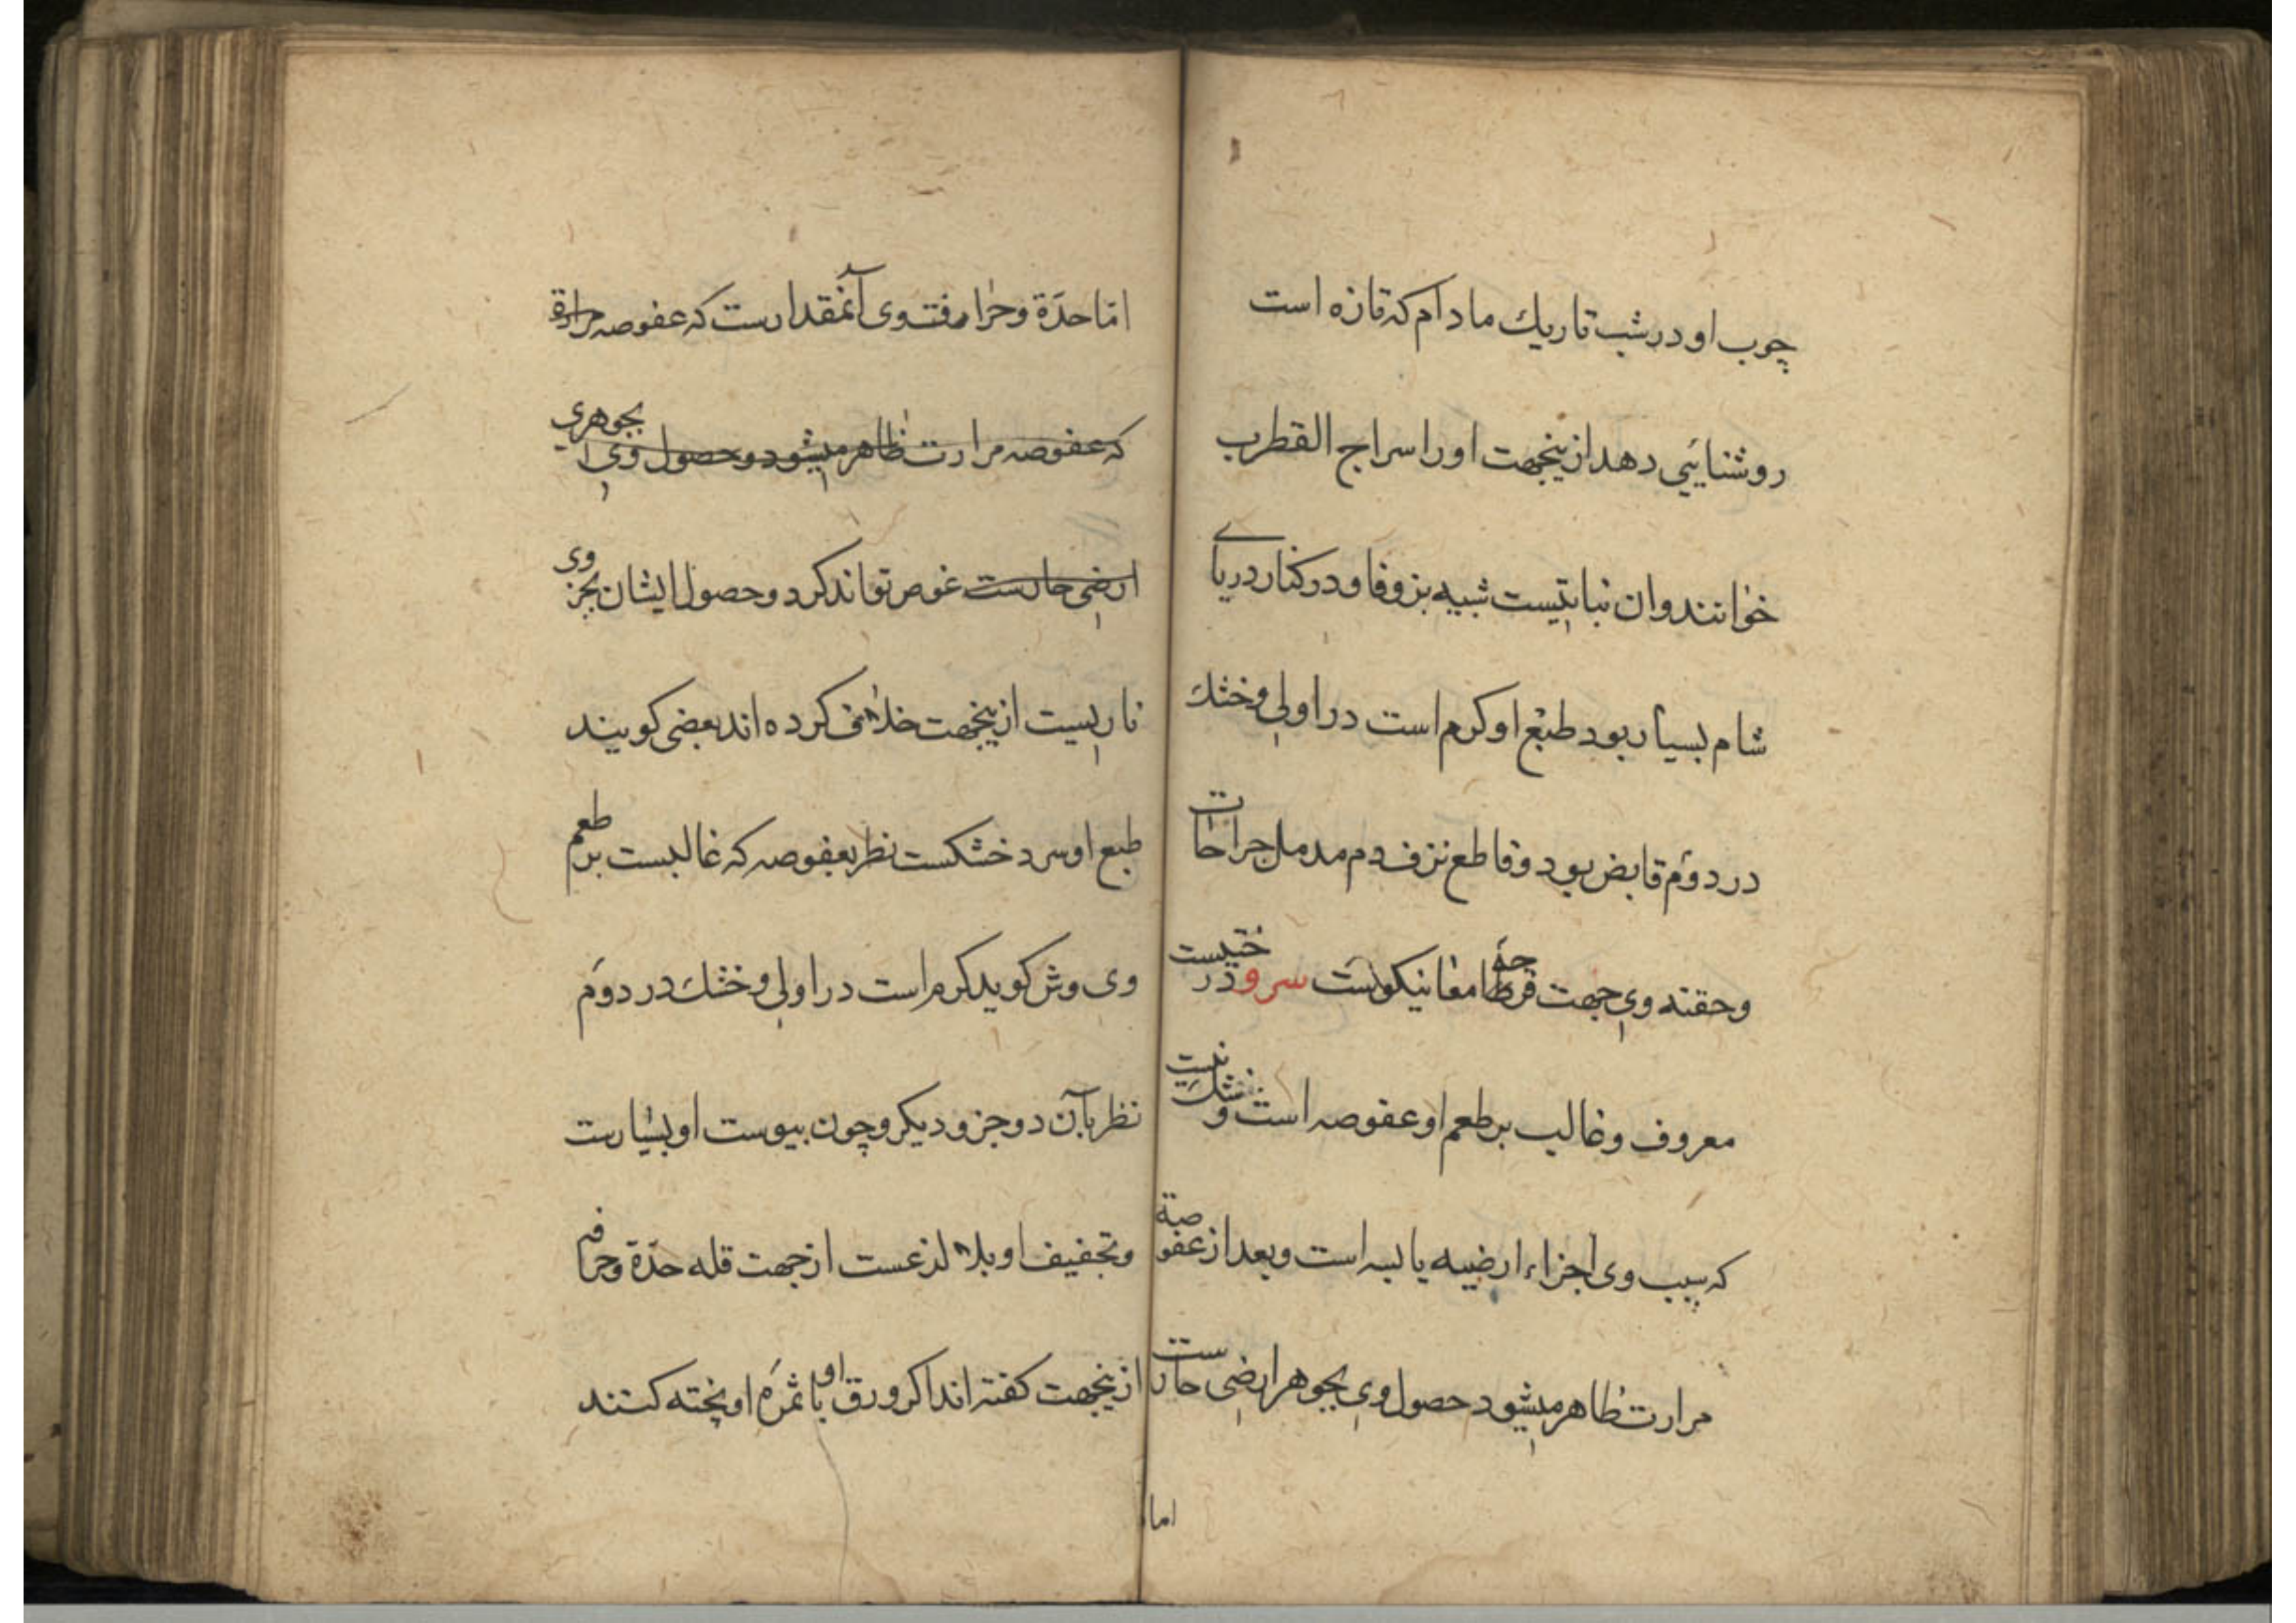 چوب او در شب تاریك مادام که تازه است
روشنایی دهد ازینجهت اورا سراج القطرب
خوانند وان نباتیست شبیه بزوفا و در کنار دریای
شام بسیار بود طبع او کرم است در اولی و خشك
در دوم قابض بود و قاطع نزف دم مدمل جراحات
وحقنه وی جهت قرحه امعا نیکوست سرو درختیست
معروف و غالب بر طعم او عفوصه است و شك نیست
که سبب وی اجزاء ارضیه یابسه است و بعد از عفوصة
مرارت ظاهر میشود حصول وی بجوهر ارضی حارست
اما
اما حدة و حرافت وی آنمقدارست که عفوصه حرارة
که عفوصه مرارت ظاهر میشود و حصول وی بجوهری
ارضی حارست غوص تواند کرد و حصول ایشان بجزوی
ناریست ازینجهت خلاف کرده اند بعضی کویند
طبع او سرد خشکست نظر بعفوصه که غالبست بر طعم
وی وش کوید کرم است در اولی و خشك در دوم
نظر بآن دو جزو دیکر و چون یبوست او بسیارست
و تجفیف او بلا لذعست از جهت قله حدة و حرافه
ازینجهت کفته اند اکر ورق او با ثمره او پخته کنند